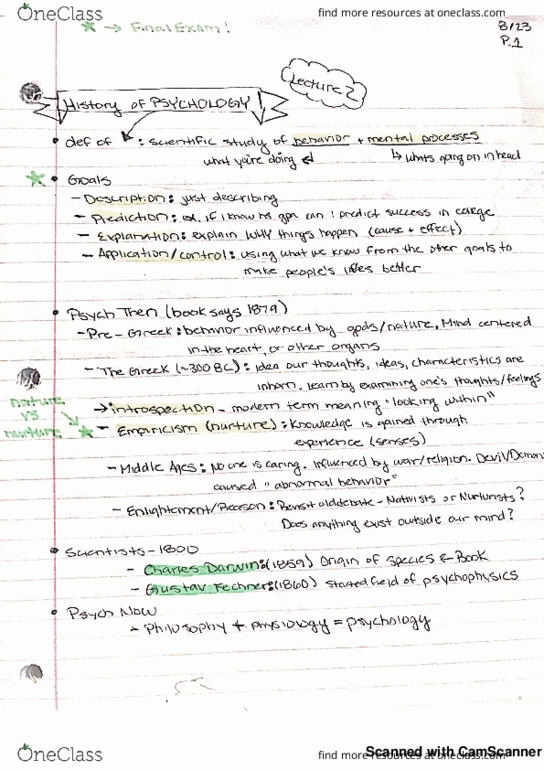 OneClass
find more resources at oneclass.com
★ → Final Exam!
8/23
P.1
Lecture 2
History of PSYCHOLOGY
• def of : scientific study of behavior + mental processes
what you're doing ↲ ↳ whats going on in head
★ • Goals
- Description: just describing
- Prediction: ex. if i know hs gpa can i predict success in college
- Explanation: explain WHY things happen (cause + effect)
- Application/control: using what we know from the other goals to
make people's lifes better
• Psych Then (book says 1879)
- Pre-Greek: behavior influenced by gods/nature, Mind centered
in the heart, or other organs
- The Greek (~300 BC): idea our thoughts, ideas, characteristics are
inborn, learn by examining one's thoughts/feelings
→ introspection - modern term meaning "looking within"
nature
vs
nurture
★ - Empiricism (nurture): Knowledge is gained through
experience (senses)
- Middle Ages: No one is caring. Influenced by war/religion. Devil/Demons
caused "abnormal behavior"
- Enlightement/Reason: Revisit old debate - Nativists or Nurturists?
Does anything exist outside our mind?
• Scientists - 1800
- Charles Darwin: (1859) Origin of Species ← Book
- Gustav Fechner: (1860) started field of psychophysics
• Psych Now
- Philosophy + physiology = psychology
OneClass
find more resources at oneclass.com
Scanned with CamScanner